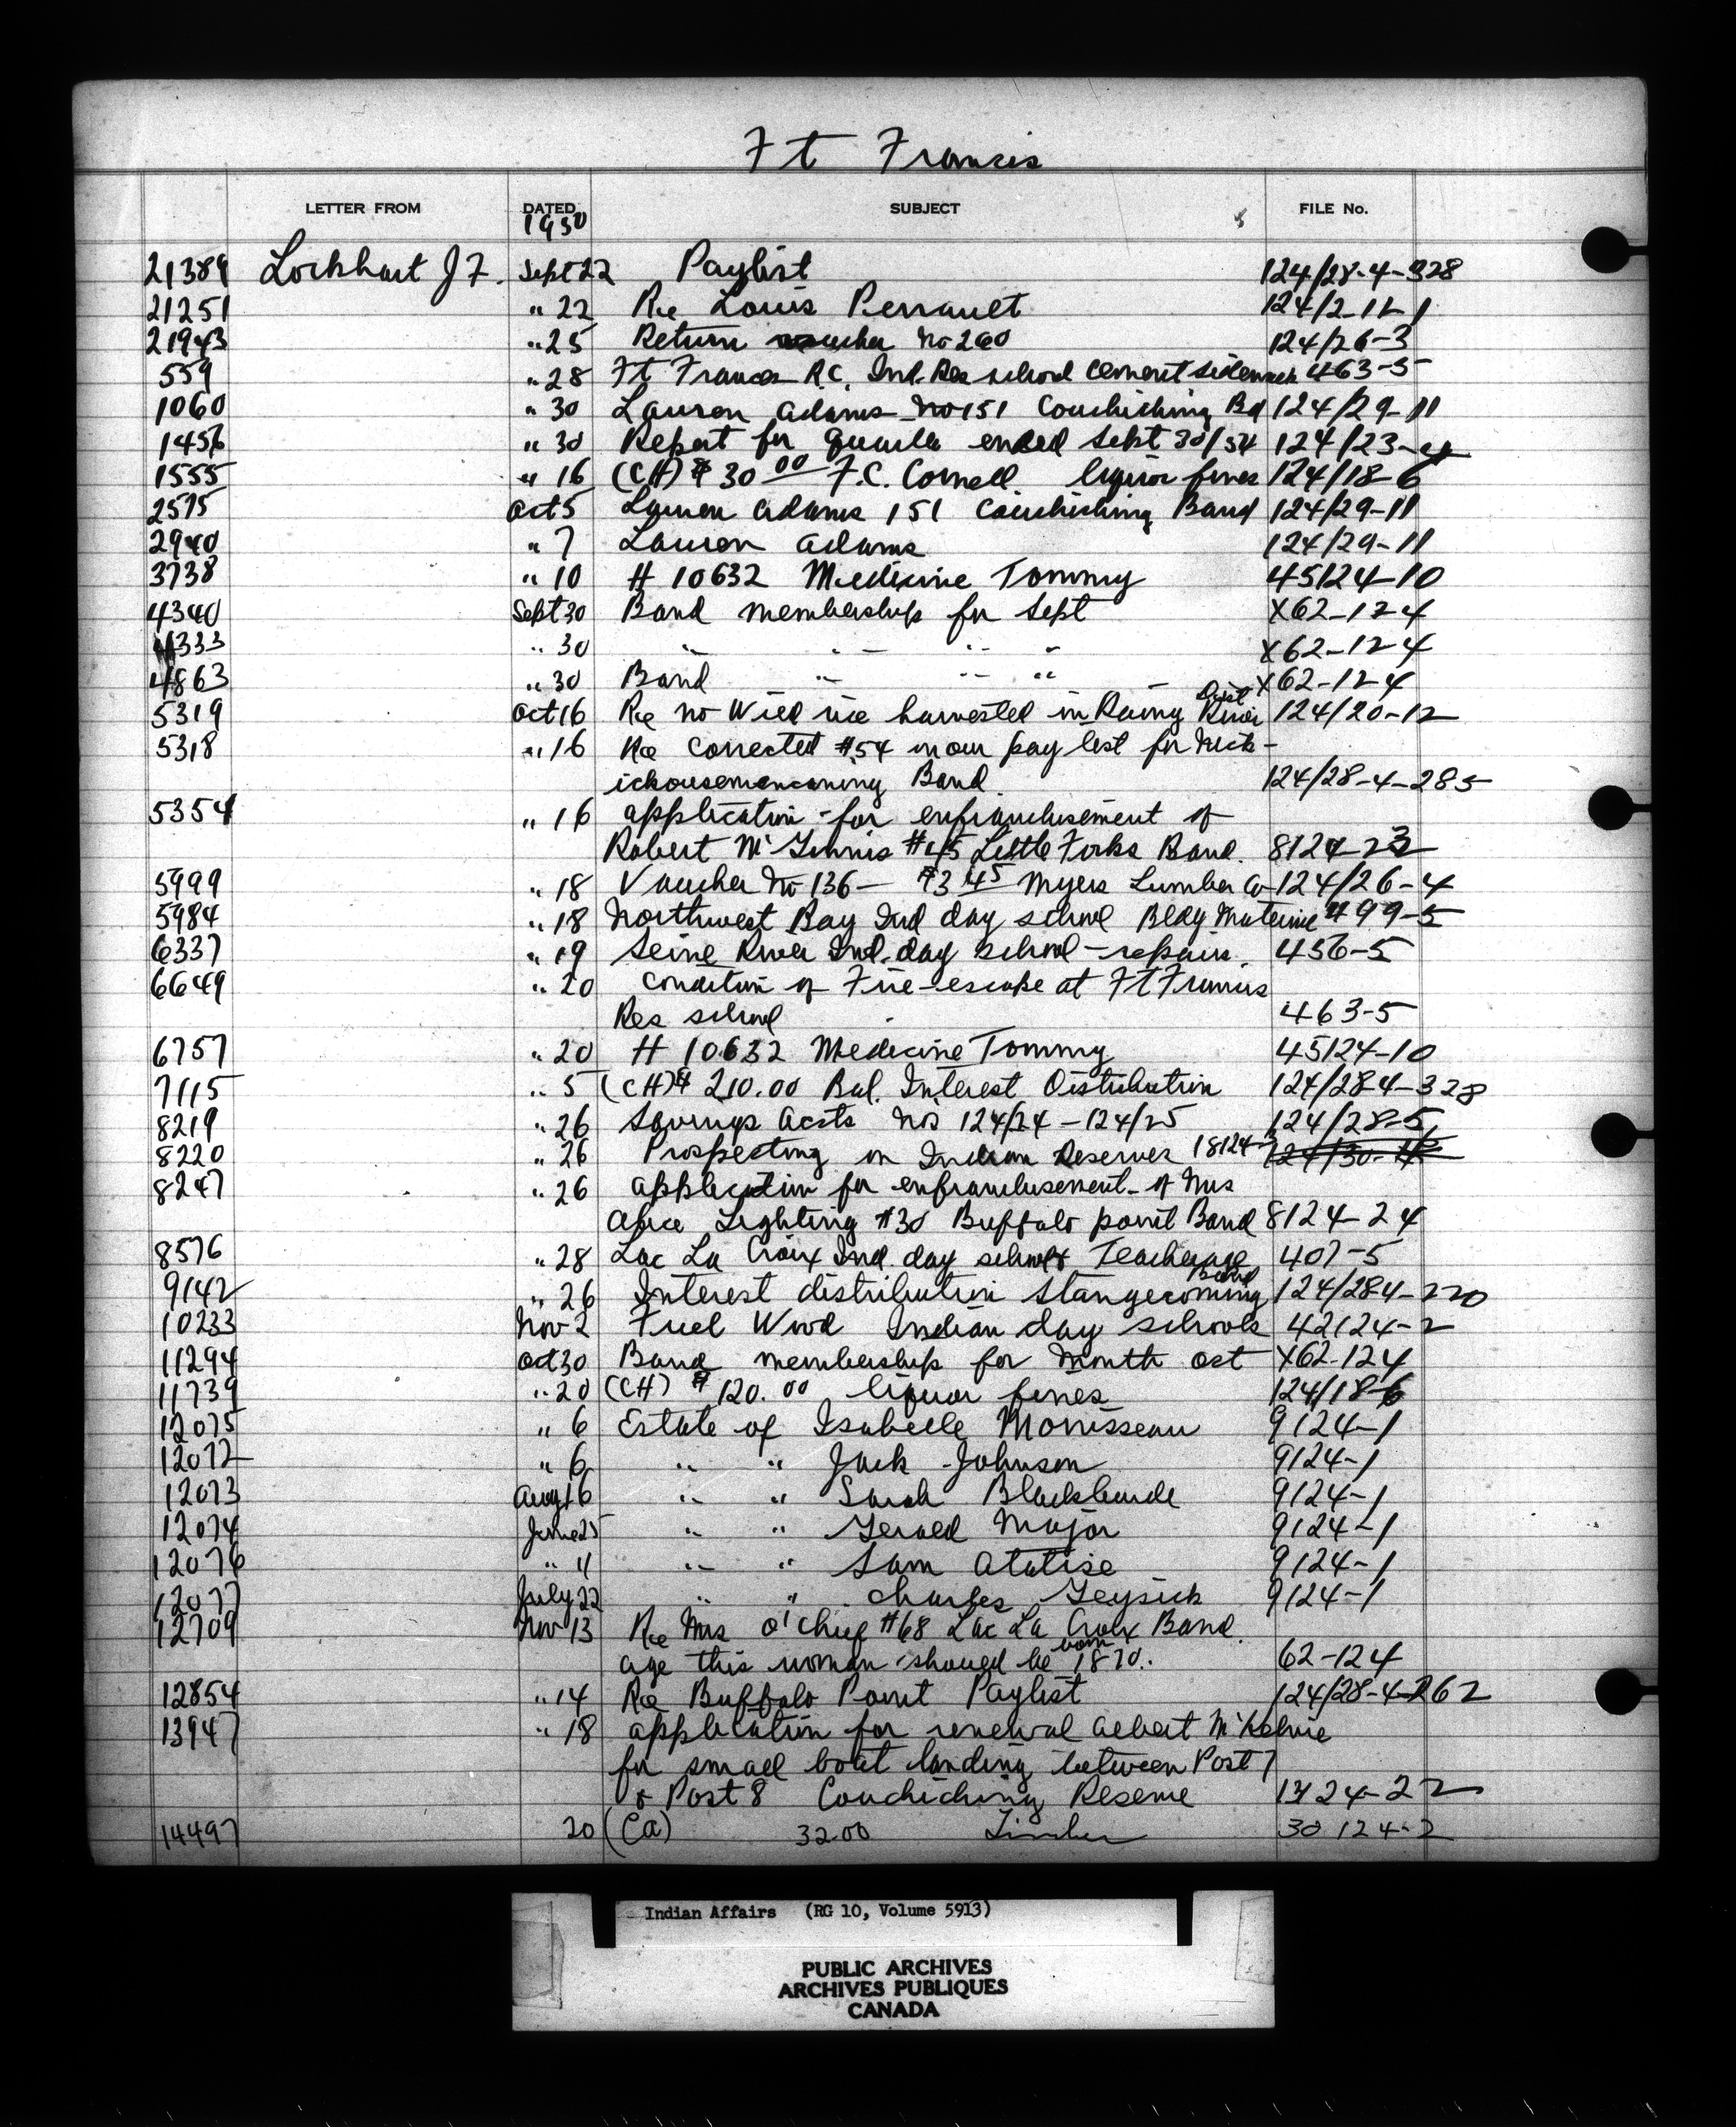 Ft Francis
LETTER FROM DATED SUBJECT FILE No.
21389 Lockhart J F. Sept 22 Paylist 124/28-4-328
21251 " 22 Re Louis Perrault 124/2-12-1
21943 " 25 Return voucher No 260 124/26-3
559 " 28 Ft Frances R.C. Ind. Res school cement sidewalk 463-5
1060 " 30 Lauren Adams No 151 Couchiching Bd 124/29-11
1456 " 30 Report for quarter ended Sept 30/34 124/23-4
1555 " 16 (CH) $30 00 F.C. Cornell liquor fines 124/18-6
2575 Oct 5 Lauren Adams 151 Couchiching Band 124/29-11
2940 " 7 Lauren Adams 124/29-11
3738 " 10 # 10632 Medicine Tommy 45124-10
4340 Sept 30 Band membership for Sept X62-124
4333 " 30 " " " " X62-124
4863 " 30 Band " " " X62-124
5319 Oct 16 Re no Wild rice harvested in Rainy River Dist 124/20-12
5318 " 16 Re corrected #54 in our pay list for Nick-
ickousemencaning Band 124/28-4-285
5354 " 16 application for enfranchisement of
Robert McGinnis #45 Little Forks Band. 8124-23
5999 " 18 Voucher No 136 - $3 45 Myers Lumber Co 124/26-4
5984 " 18 Northwest Bay Ind day school Bldg Material 499-5
6337 " 19 Seine River Ind. day school - repairs. 456-5
6649 " 20 Condition of Fire-escape at Ft Francis
Res school 463-5
6757 " 20 # 10632 Medicine Tommy 45124-10
7115 " 5 (CH) $ 210.00 Bal. Interest Distribution 124/28-4-328
8219 " 26 Savings accts Nos 124/24 - 124/25 124/28-5
8220 " 26 Prospecting on Indian Reserves 18124-3 124/30-4
8247 " 26 application for enfranchisement of Mrs
Alice Lighting #30 Buffalo point Band 8124-24
8576 " 28 Lac La Croix Ind. day school Teacherage 407-5
9142 " 26 Interest distribution Stangecoming Band 124/28-4-220
10233 Nov 2 Fuel Wood Indian day schools 42124-2
11294 Oct 30 Band membership for month Oct X62-124
11739 " 20 (CH) $ 120.00 liquor fines 124/18-6
12075 " 6 Estate of Isabelle Morrisseau 9124-1
12072 " 6 " " Jack Johnson 9124-1
12073 Aug 16 " " Sarah Blackburde 9124-1
12074 June 25 " " Gerald Major 9124-1
12076 " 11 " " Sam Atatise 9124-1
12077 July 22 " " Charles Geysick 9124-1
12709 Nov 13 Re Mrs O'Chief #68 Lac La Croix Band.
age this woman should be born 1870. 62-124
12854 " 14 Re Buffalo Point Paylist 124/28-4-262
13947 " 18 application for renewal Albert McKelvie
for small boat landing between Post 7
& Post 8 Couchiching Reserve 13124-22
14497 20 (Ca) 32.00 Timber 30 124-2
Indian Affairs (RG 10, Volume 5913)
PUBLIC ARCHIVES
ARCHIVES PUBLIQUES
CANADA